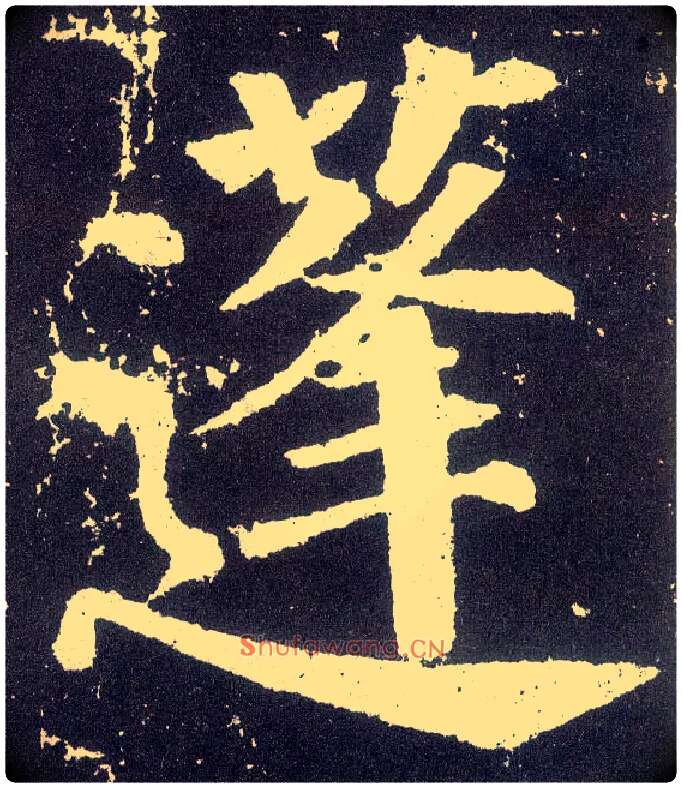 蓬
Shufawang.CN